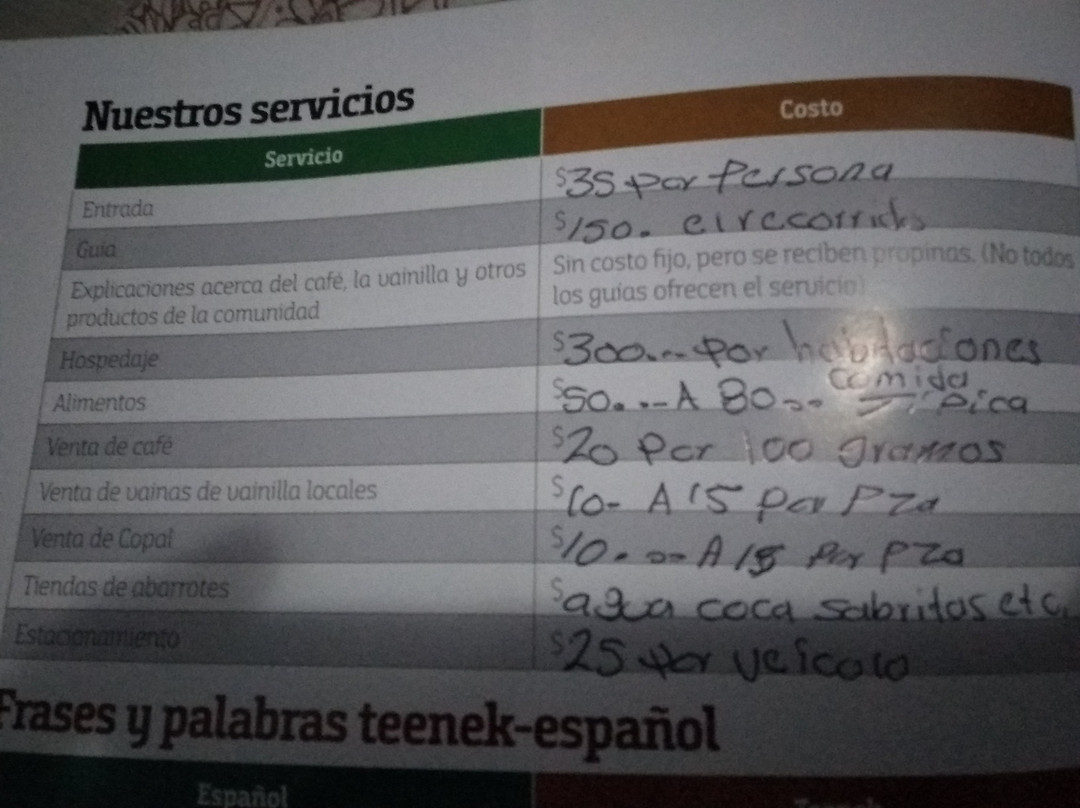 Nuestros servicios
Servicio
Costo
Entrada
$35 por Persona
Guía
$150. el recorrido
Explicaciones acerca del café, la vainilla y otros
productos de la comunidad
Sin costo fijo, pero se reciben propinas. (No todos
los guías ofrecen el servicio)
Hospedaje
$300.-- por habitaciones
Alimentos
$50..-A 80-- comida
típica
Venta de café
$20 Por 100 gramos
Venta de vainas de vainilla locales
$10- A 15 por Pza
Venta de Copal
$10. -- A 15 por pza
Tiendas de abarrotes
$agua coca sabritas etc.
Estacionamiento
$25 por veícolo
Frases y palabras teenek-español
Español